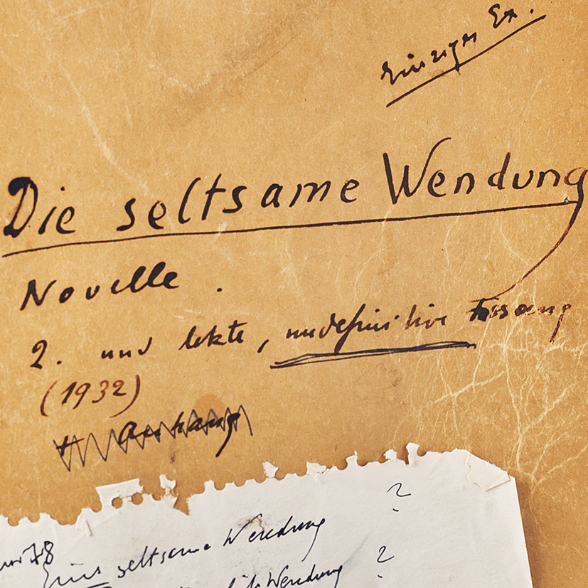 Einziges Ex.
Die seltsame Wendung
Novelle.
2. und letzte, undefinitive Fassung
(1932)
+ Anhang
?
Eine seltsame Wendung
? Wendung